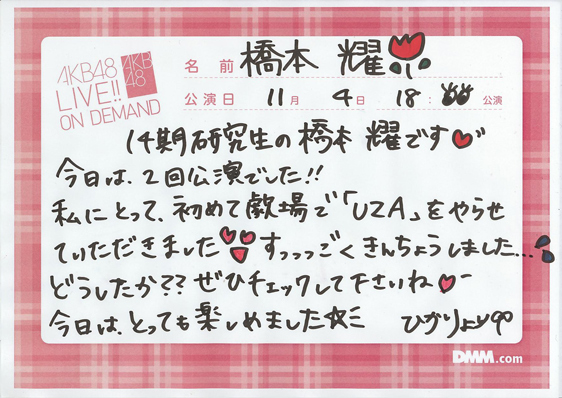 AKB48
LIVE!!
ON DEMAND
AKB
48
名前 橋本 耀
公演日 11月 4日 18:00 公演
14期研究生の橋本 耀です
今日は、2回公演でした!!
私にとって、初めて劇場で「UZA」をやらせ
ていただきました すっっっごくきんちょうしました...
どうしたか?? ぜひチェックして下さいね
今日は、とっても楽しめました☆ミ ひかりより
DMM.com